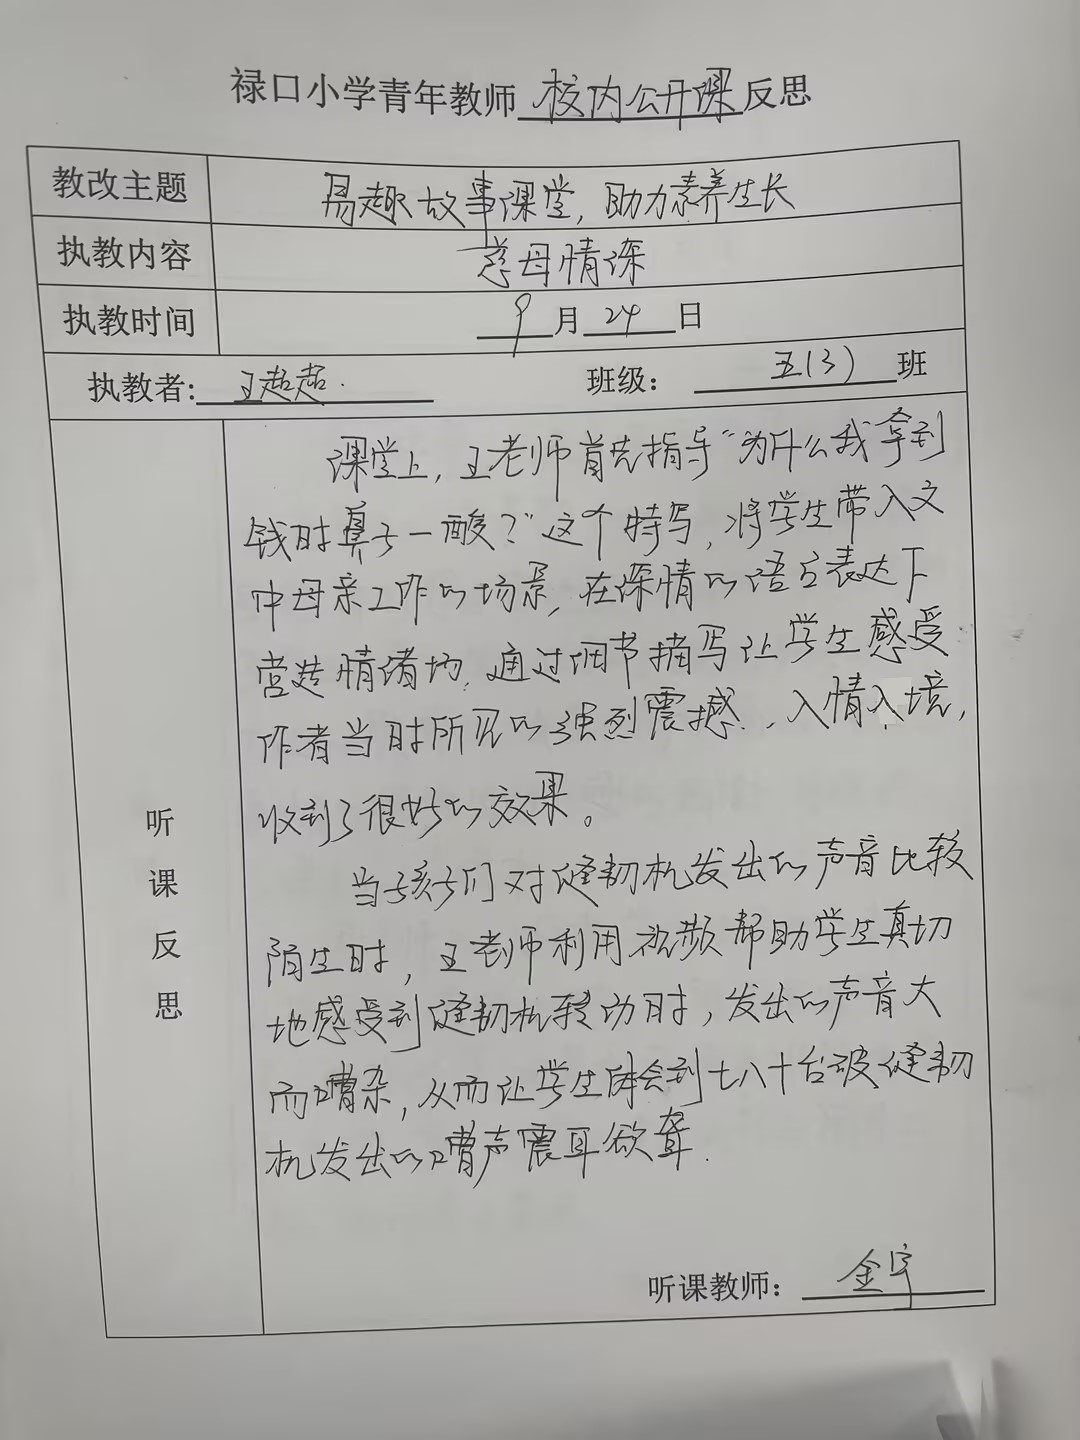 禄口小学青年教师校内公开课反思
教改主题 易趣故事课堂，助力素养生长
执教内容 慈母情深
执教时间 9月24日
执教者：王超超. 班级：五(3)班
听课反思
课堂上，王老师首先指导“为什么我拿到
钱时鼻子一酸？”这个特写，将学生带入文
中母亲工作的场景，在深情的语言表达下
营造情绪场，通过细节描写让学生感受
作者当时所见的强烈震撼.，入情入境，
收到了很好的效果。
当孩子们对缝韧机发出的声音比较
陌生时，王老师利用视频帮助学生真切
地感受到缝韧机转动时，发出的声音大
而嘈杂，从而让学生体会到七八十台破缝韧
机发出的嘈声震耳欲聋.
听课教师：金宇